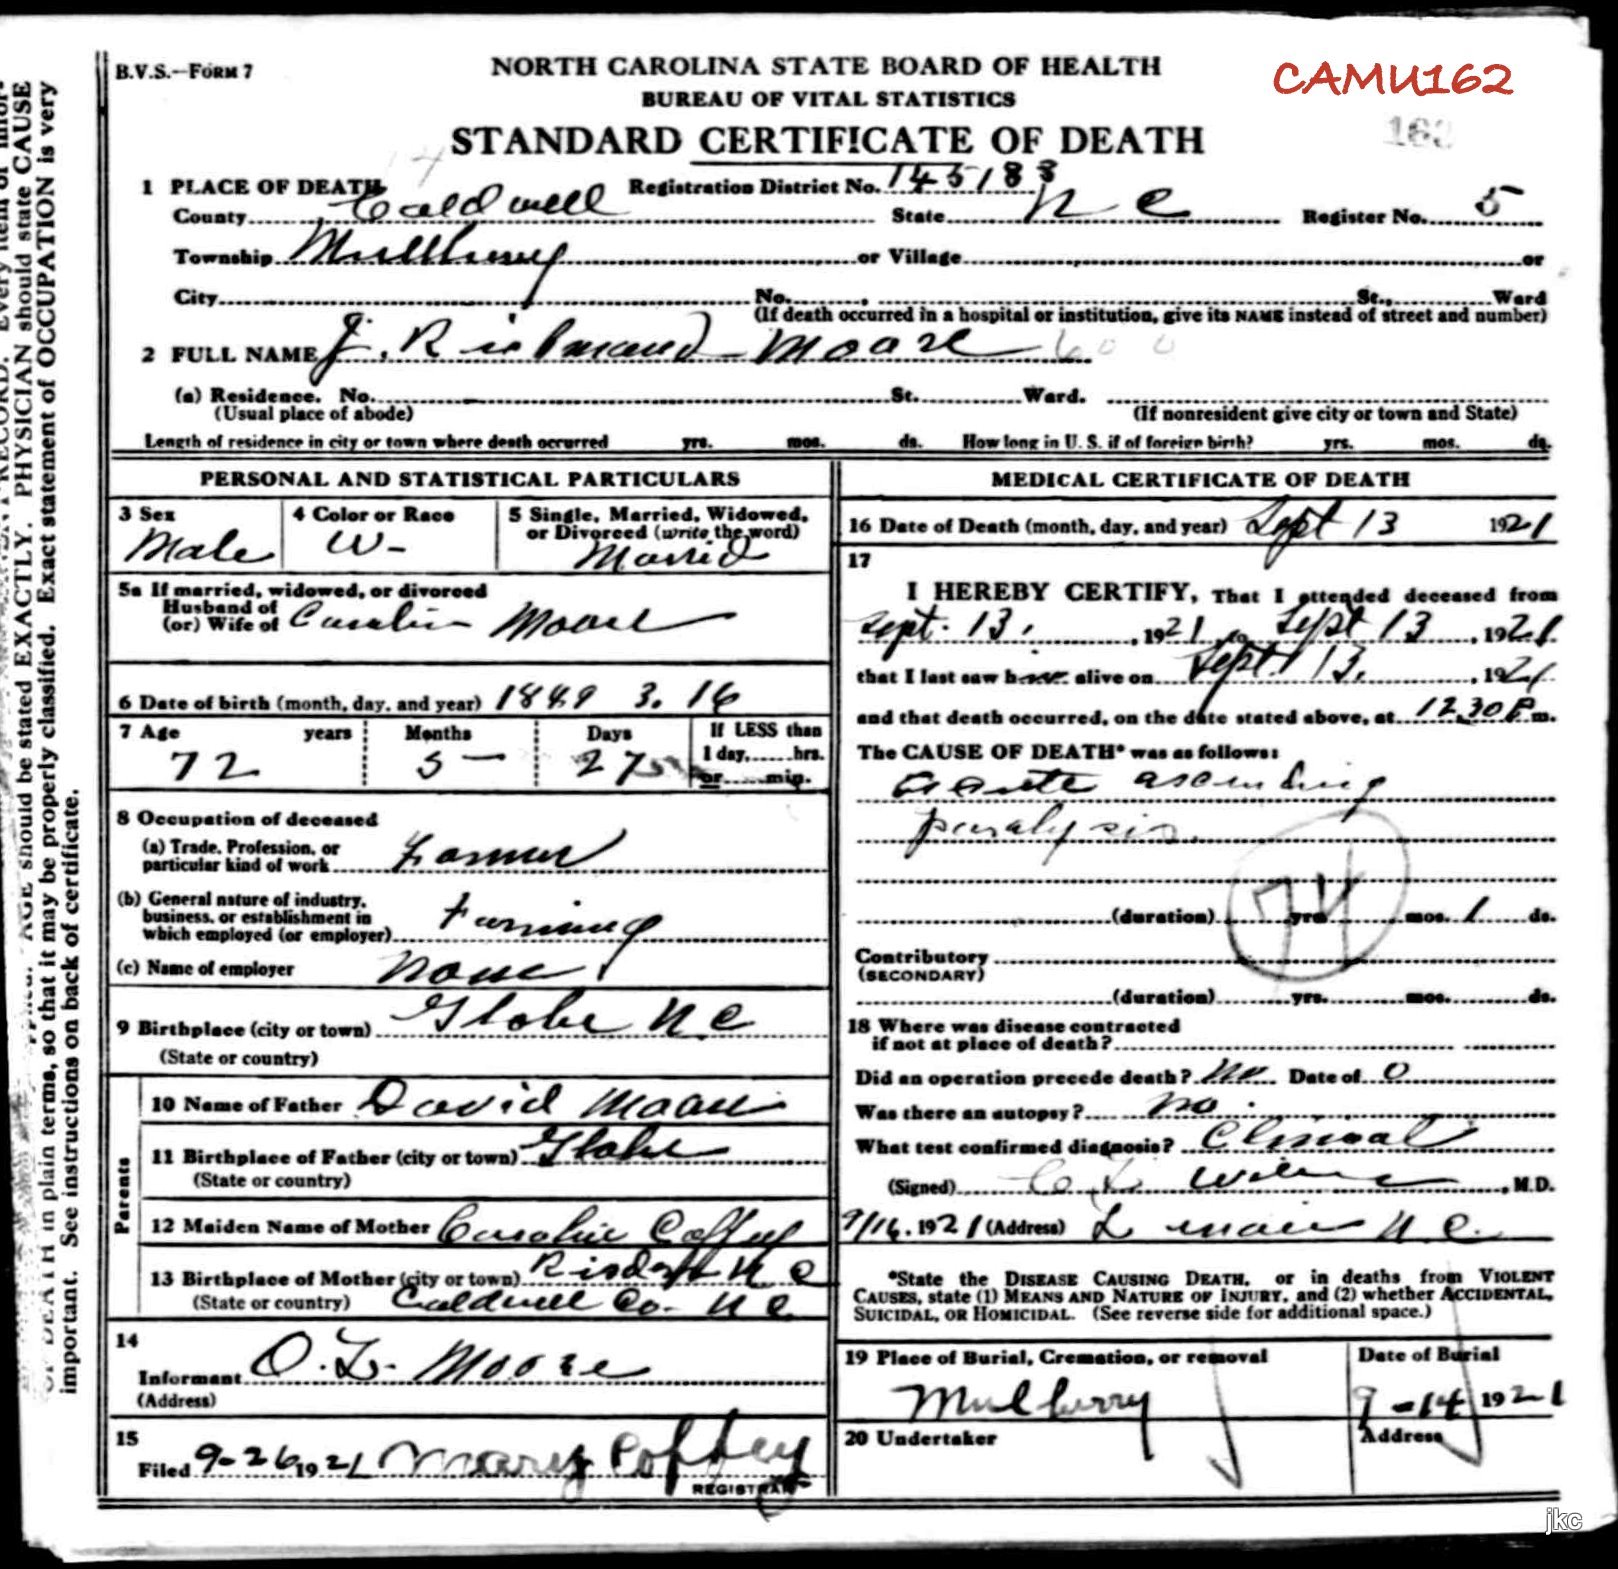 B.V.S.—FORM 7
NORTH CAROLINA STATE BOARD OF HEALTH
CAMU162
BUREAU OF VITAL STATISTICS
STANDARD CERTIFICATE OF DEATH
162
1 PLACE OF DEATH Registration District No. 145183
County Caldwell State N C Register No. 5
Township Mullberry or Village or
City No. St., Ward
(If death occurred in a hospital or institution, give its NAME instead of street and number)
2 FULL NAME J. Richmand Moore
(a) Residence. No. St. Ward.
(Usual place of abode) (If nonresident give city or town and State)
Length of residence in city or town where death occurred yrs. mos. ds. How long in U. S. if of foreign birth? yrs. mos. ds.
PERSONAL AND STATISTICAL PARTICULARS
3 Sex 4 Color or Race 5 Single, Married, Widowed, or Divorced (write the word)
Male W- Married
5a If married, widowed, or divorced
Husband of
(or) Wife of Carolin Moore
6 Date of birth (month, day, and year) 1849 3. 16
7 Age years Months Days If LESS than
1 day, hrs.
72 5 27 or min.
8 Occupation of deceased
(a) Trade, Profession, or
particular kind of work Farmer
(b) General nature of industry,
business, or establishment in
which employed (or employer) Farming
(c) Name of employer None
9 Birthplace (city or town) Globe N C
(State or country)
Parents
10 Name of Father David Moore
11 Birthplace of Father (city or town) Globe
(State or country)
12 Maiden Name of Mother Caroline Coffey
13 Birthplace of Mother (city or town) N C
(State or country) Caldwell Co- N C
14
Informant O. L. Moore
(Address)
15
Filed 9-26 1921 Mary Coffey
REGISTRAR
MEDICAL CERTIFICATE OF DEATH
16 Date of Death (month, day, and year) Sept 13 1921
17
I HEREBY CERTIFY, That I attended deceased from
Sept. 13, 1921, to Sept 13, 1921
that I last saw him alive on Sept. 13, 1921
and that death occurred, on the date stated above, at 12.30 P m.
The CAUSE OF DEATH* was as follows:
acute ascending
paralysis.
74
(duration) yrs. mos. 1 ds.
Contributory
(SECONDARY)
(duration) yrs. mos. ds.
18 Where was disease contracted
if not at place of death?
Did an operation precede death? No Date of 0
Was there an autopsy? no.
What test confirmed diagnosis? Clinical
(Signed) M.D.
9/16, 1921 (Address) Lenoir N.C.
*State the DISEASE CAUSING DEATH, or in deaths from VIOLENT
CAUSES, state (1) MEANS AND NATURE OF INJURY, and (2) whether ACCIDENTAL,
SUICIDAL, OR HOMICIDAL. (See reverse side for additional space.)
19 Place of Burial, Cremation, or removal Date of Burial
Mulberry 9-14 1921
20 Undertaker Address
should be stated EXACTLY. PHYSICIAN should state CAUSE
in plain terms, so that it may be properly classified. Exact statement of OCCUPATION is very
important. See instructions on back of certificate.
jkc